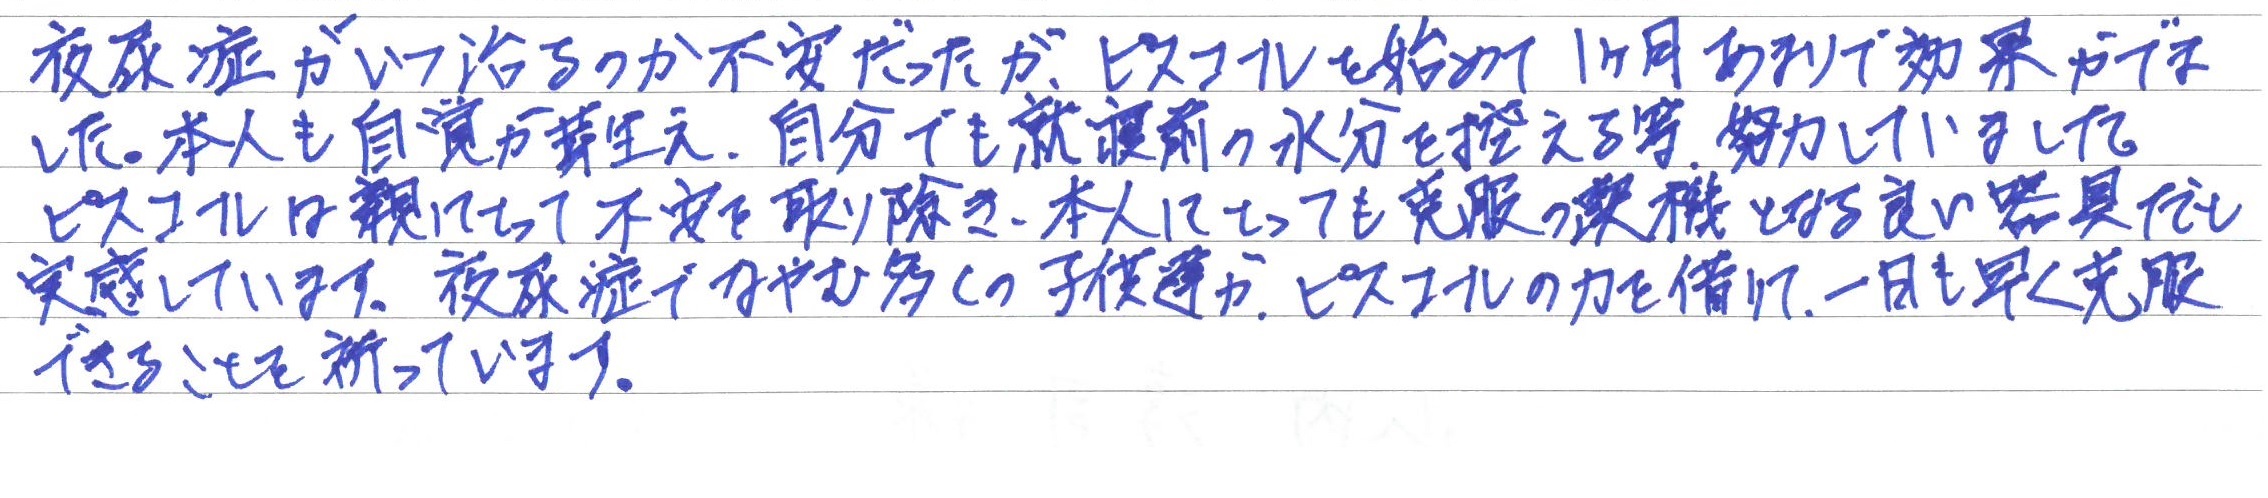 夜尿症がいつ治るのか不安だったが、ピスコールを始めて1ヶ月あまりで効果がでま
した。本人も自覚が芽生え、自分でも就寝前の水分を控える等、努力していました。
ピスコールは親にとって不安を取り除き、本人にとっても克服の契機となる良い器具だと
実感しています。夜尿症でなやむ多くの子供達が、ピスコールの力を借りて、一日も早く克服
できることを祈っています。